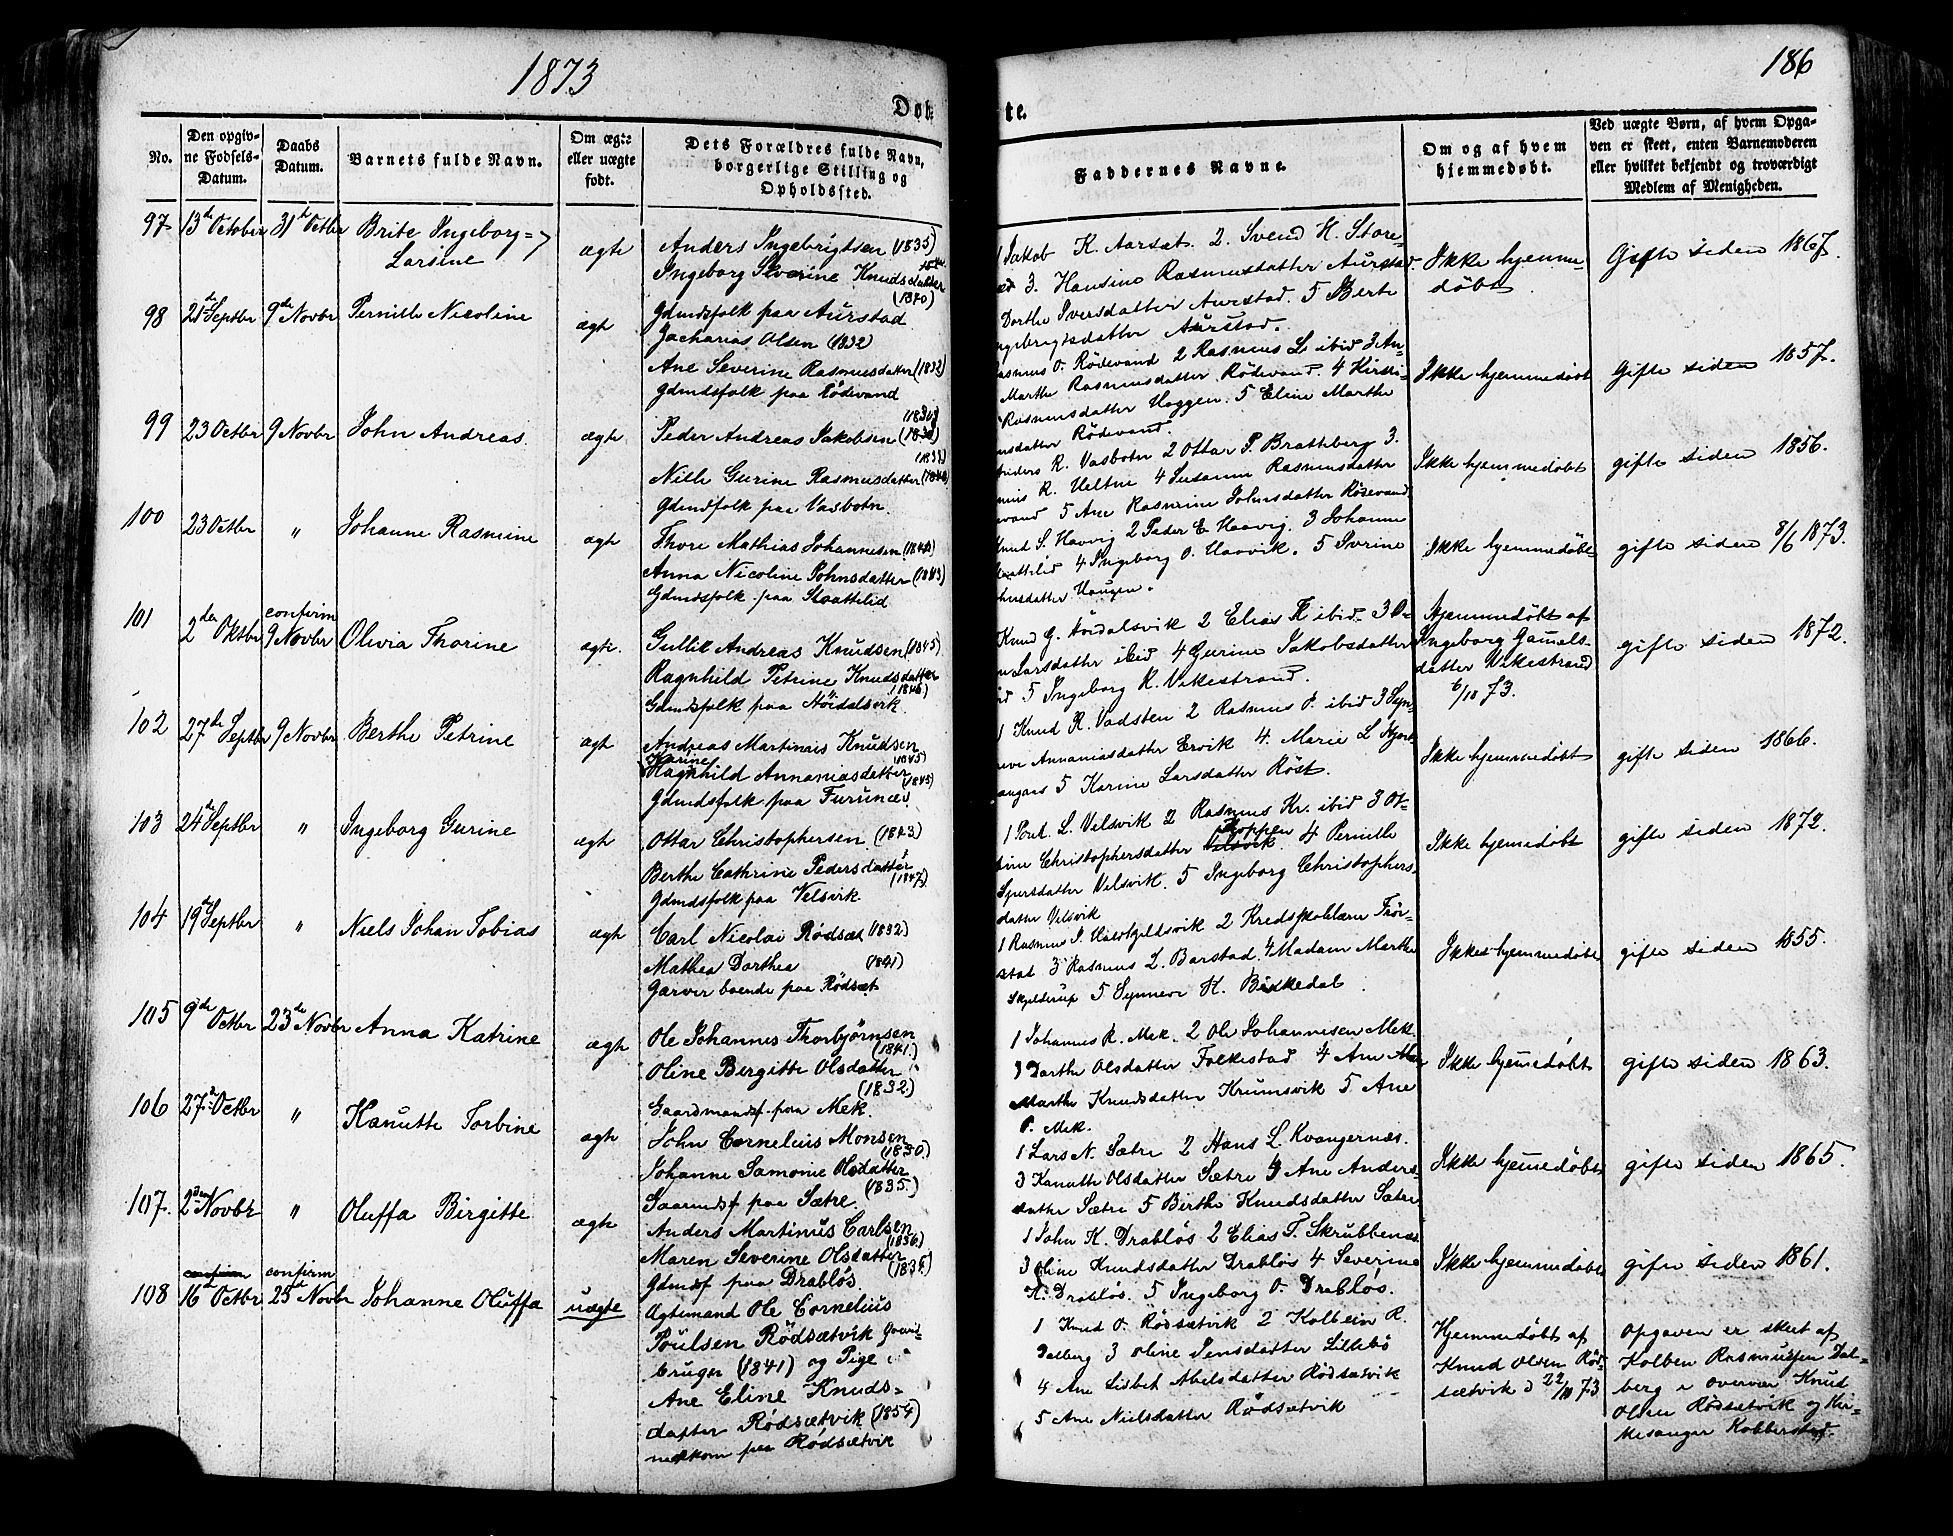 1873
186
Døbte.
No.
Den opgiv-
ne Fødsels-
Datum.
Daabs
Datum.
Barnets fulde Navn.
Om ægte
eller uægte
født.
Dets Forældres fulde Navn,
borgerlige Stilling og
Opholdssted.
Faddernes Navne.
Om og af hvem
hjemmedøbt.
Ved uægte Børn, af hvem Opga-
ven er skeet, enten Barnemoderen
eller hvilket bekjendt og troværdigt
Medlem af Menigheden.
97 13de October 31te Octbr Brite Ingeborg=
Larsine
ægte
Anders Ingebrigtsen (1835)
Ingeborg Severine Knudsdatter
(1840)
Gdmdsfolk paa Aurstad
1 Jakob K. Aarsæt. 2. Svend H. Store-
3. Hansine Rasmusdatter Aurstad
Dorthe Iversdatter Aurstad. 5 Berte
Ingebrigtsdatter Aurstad.
Ikke hjemme-
døbt.
Gifte siden 1867.
98 21de Septbr 9de Novbr Pernille Nicoline
ægte
Zacharias Olsen (1832)
Ane Severine Rasmusdatter (1832)
Gdmdsfolk paa Rödevand
Rasmus O. Rødevand 2 Rasmus L. ibid 3 An-
Marthe Rasmusdatter Rødevand. 4 Kirsti-
Rasmusdatter Haggen. 5 Eline Marthe
Rødevand.
Ikke hjemmedøbt
Gifte siden 1857.
99 23 Octbr 9 Novbr John Andreas
ægte
Peder Andreas Jakobsen
Nille Gurine Rasmusdatter
Gdmdsfolk paa Vasbotn.
Anders R. Vasbotn 2 Ottar P. Brathberg 3.
R. Veltne 4 Susanne Rasmusdatter
5 Ane Rasmine Johnsdatter Rødevand
Ikke hjemmedøbt
gifte siden 1856.
100 23 Octbr " Johanne Rasmine
ægte
Thore Mathias Johannesen (1844)
Anna Nicoline Johnsdatter (1843)
Gdmdsfolk paa Slaattelid
Knud S. Haavig 2 Peder E Haavig. 3 Johanne
Slaattelid 4 Ingeborg O. Haavik. 5 Sverine
Haugen.
Ikke hjemmedøbt
gifte siden 8/6 1873.
101 2den Oktbr confirm
9 Novbr Olivia Thorine
ægte.
Gullik Andreas Knudsen (1845)
Ragnhild Petrine Knudsdatter
(1846)
Gdmdsfolk paa Höidalsvik
Knud G. Høidalsvik 2 Elias K ibid. 3 O-
Larsdatter ibid 4 Gurine Jakobsdatter
5 Ingeborg K. Vikestrand.
Hjemmedøbt af
Ingeborg Gamels-
datter Vikestrand
6/10 73.
gifte siden 1872.
102 27de Septbr 9 Novbr Berthe Petrine
ægte
Andreas Martinus Knudsen
(1845)
Karine
Ragnhild Annaniasdatter
(1845)
Gdmdsfolk paa Furunæs
1 Knud R. Vadsten 2 Rasmus O. ibid 3 Syn-
neve Annaniasdatter Ervik 4. Marie L Hjort-
angnes 5 Karine Larsdatter Røst.
Ikke hjemmedøbt
gifte siden 1866.
103 24de Septbr " Ingeborg Gurine
ægte
Ottar Christophersen (1843)
Berthe Cathrine Pedersdatter
(1847)
Gdmdsfolk paa Velsvik
1 Poul L. Velsvik 2 Rasmus Kr. ibid 3 Ol-
tine Christophersdatter Velsvik Koppen 4 Pernille
Sjursdatter Velsvik. 5 Ingeborg Christophers-
datter Velsvik
Ikke hjemedøbt
gifte siden 1872.
104 19de Septbr " Niels Johan Tobias
ægte
Carl Nicolai Rødsæt (1832.)
Mathea Dorthea (1841)
Garver boende paa Rødsæt
1 Rasmus J. 2 Kredsskolelærer Frør-
stad 3 Rasmus L. Barstad. 4 Madam Marthe
Skjelderup 5 Synneve H. Birkedal.
Ikke hjemmedøbt
gifte siden 1855.
105 9de Octbr 23de Novbr Anna Katrine
ægte
Ole Johannes Thorbjørnsen
(1841.)
Oline Birgitte Olsdatter
(1832)
Gaardmandsf. paa Mek.
1 Johannes R. Mek. 2 Ole Johannesen Mek.
3 Dorthe Olsdatter Folkestad 4 Ane
Marthe Knudsdatter Krumsvik 5 Ane
P. Mek.
Ikke hjemedøbt
gifte siden 1863.
106 27de Octbr " Kanutte Torbine
ægte
John Cornelius Monsen
(1830.)
Johanne Samonie Olsdatter
(1835.)
Gaarmdsf paa Sætre
1 Lars N. Sætre 2 Hans L. Kvangernæs.
3 Kanutte Olsdatter Sætre 4 Ane Anders-
datter Sætre 5 Birthe Knudsdatter Sætre
Ikke hjemedøbt
gifte siden 1865.
107. 2den Novbr " Oluffa Birgitte
ægte
Anders Martinus Carlsen
(1836.)
Maren Severine Olsdatter
Gdmdsf paa Drabløs
1 John K. Drabløs 2 Elias T. Skrubbenes
3 Oline Knudsdatter Drabløs 4 Severine
K. Drabløs. 5 Ingeborg O. Drabløs.
Ikke hjemmedøbt
gifte siden 1861.
108 confirm
16de Octbr confirm
23de Novbr Johanne Oluffa
uægte
Ægtemand Ole Cornelius
Poulsen Rödsætvik Gaard-
bruger (1841) og Pige
Ane Eline Knuds-
datter Rødsætvik (1854)
nedkom paa Rødsætvik
1 Knud O. Rødsætvik 2 Kolbein R.
Dalberg 3 Oline Jensdatter Lillebø
4 Ane Lisbet Abelsdatter Rødsætvik
5 Ane Nielsdatter Rødsætvik
Hjemmedøbt af
Knud Olsen Rød-
sætvik d 22/10 73
Opgaven er skeet af
Kolben Rasmussen Dal-
berg i overvær Knud
Olsen Rødsætvik og Kir-
kesanger Kobberstad.